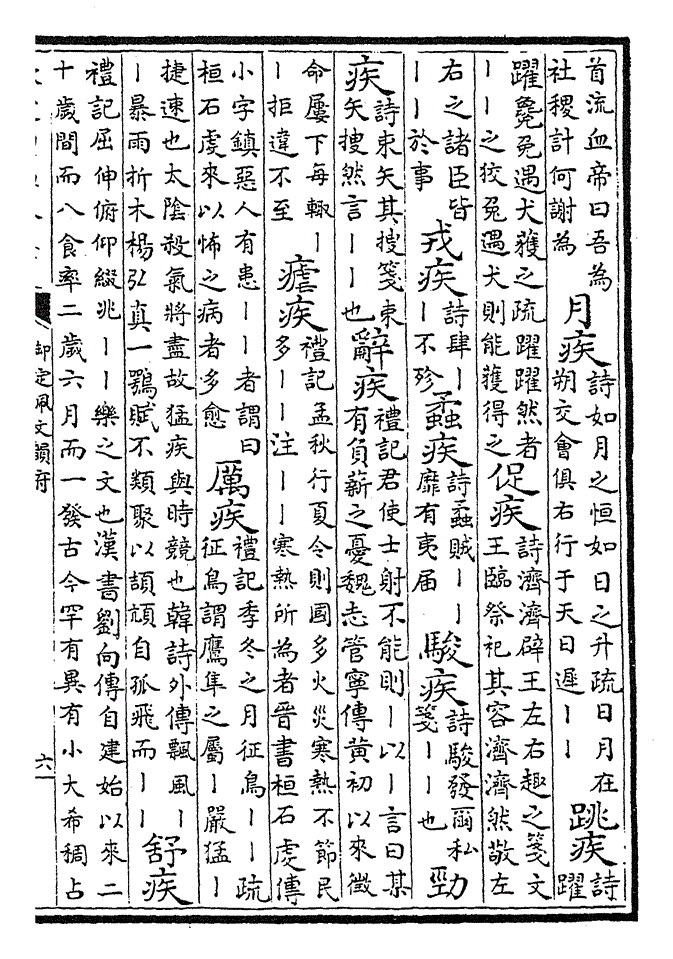 首流血帝曰吾為
社稷計何謝為
月疾
詩如月之恒如日之升疏日月在
朔交會俱右行于天日遲丨丨
跳疾
詩躍
躍毚兔遇犬獲之疏躍躍然者
丨丨之狡兔遇犬則能獲得之
促疾
詩濟濟辟王左右趣之箋文
王臨祭祀其容濟濟然敬左
右之諸臣皆
丨丨於事
戎疾
詩肆丨
丨不殄
蟊疾
詩蟊賊丨丨
靡有夷届
駿疾
詩駿發爾私
箋丨丨也
勁
疾
詩束矢其搜箋束
矢搜然言丨丨也
辭疾
禮記君使士射不能則丨以丨言曰某
有負薪之憂魏志管寧傳黄初以來徵
命屢下每輒丨
丨拒違不至
瘧疾
禮記孟秋行夏令則國多火災寒熱不節民
多丨丨注丨丨寒熱所為者晉書桓石䖍傳
小字鎮惡人有患丨丨者謂曰
桓石䖍來以怖之病者多愈
厲疾
禮記季冬之月征鳥丨丨疏
征鳥謂鷹隼之屬丨嚴猛丨
捷速也太陰殺氣將盡故猛疾與時競也韓詩外傳飄風丨
丨暴雨折木楊弘真一鶚賦不類聚以頡頏自孤飛而丨丨
舒疾
禮記屈伸俯仰綴兆丨丨樂之文也漢書劉向傳自建始以來二
十歲間而八食率二歲六月而一發古今罕有異有小大希稠占
御定佩文韻府
六一